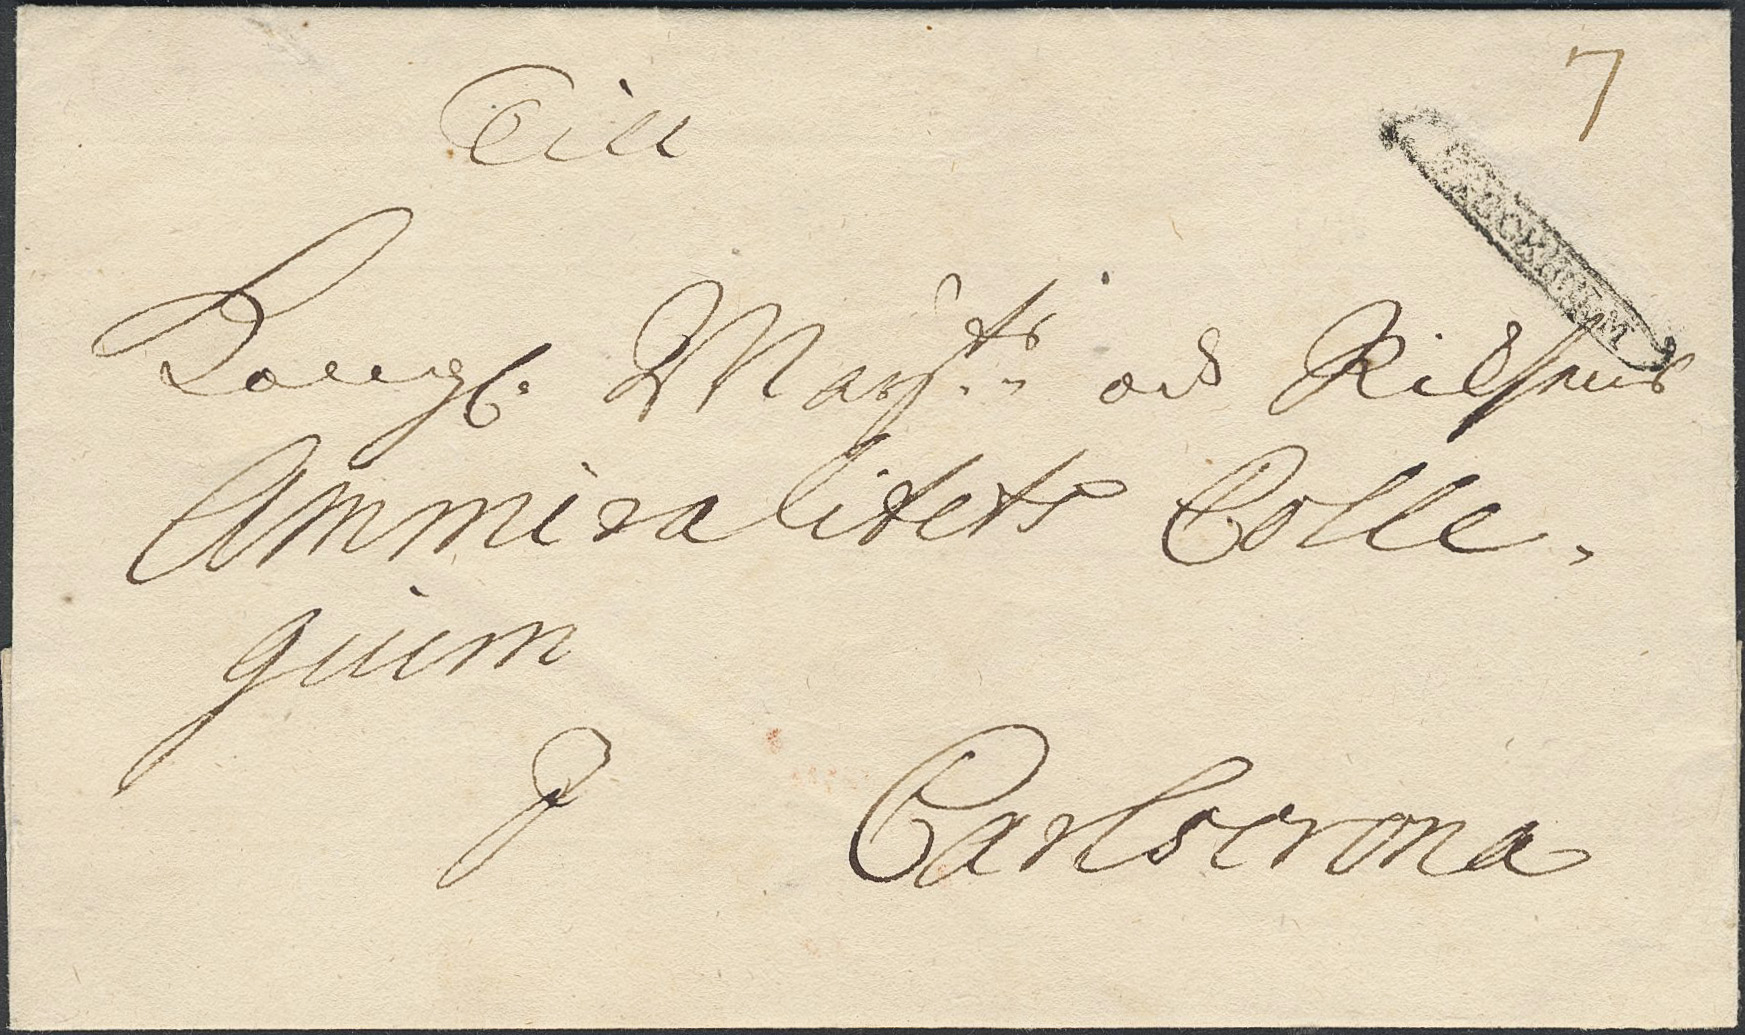 7
Till
STOCKHOLM
Kongl. Maij:ts och Riksens
Ammiralitets Colle-
gium
Carlscrona